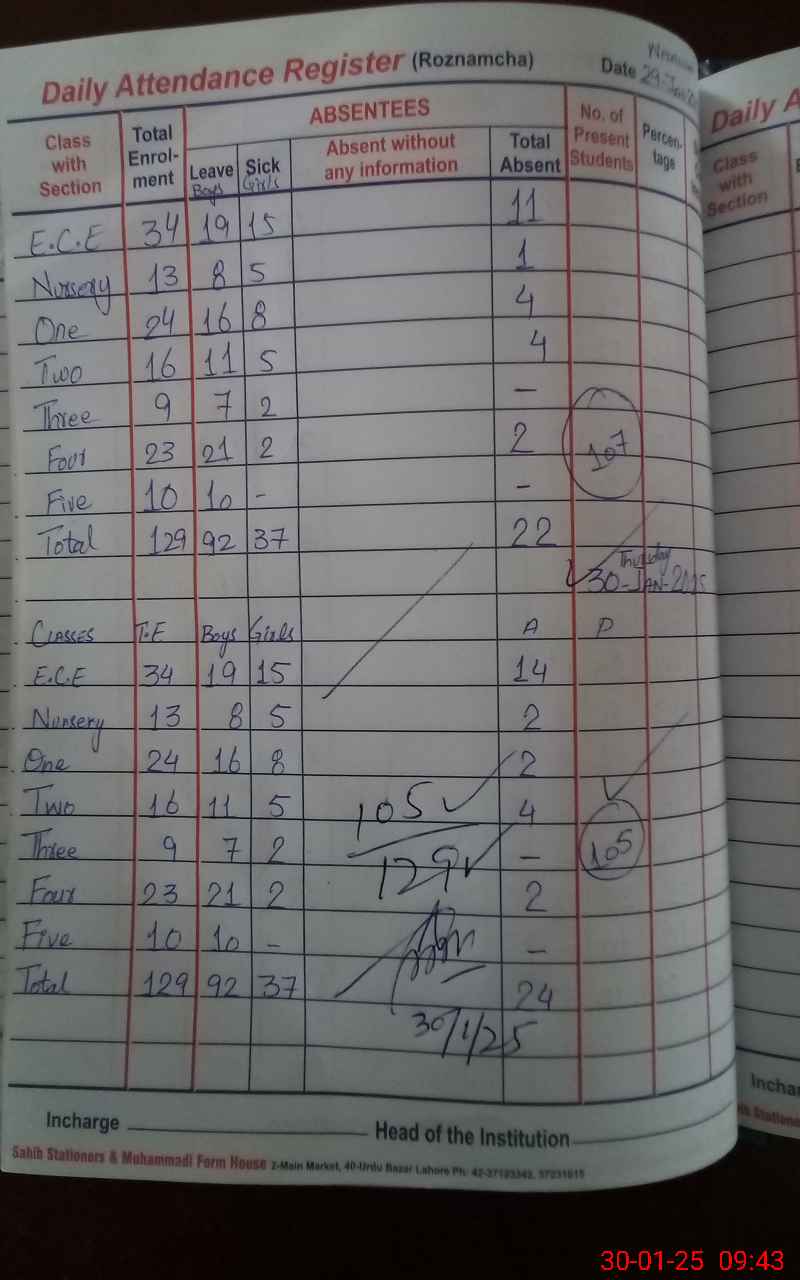 Daily Attendance Register (Roznamcha)
Date 29-Jan
Class with Section
Total Enrol-ment
ABSENTEES
Leave Boys
Sick Girls
Absent without any information
Total Absent
No. of Present Students
Percen-tage
E.C.E 34 19 15 11
Nursery 13 8 5 1
One 24 16 8 4
Two 16 11 5 4
Three 9 7 2 –
Four 23 21 2 2
107
Five 10 10 - –
Total 129 92 37 22
Thursday
30-JAN-2025
CLASSES T.E Boys Girls A P
E.C.E 34 19 15 14
Nursery 13 8 5 2
One 24 16 8 2
Two 16 11 5 4
105
Three 9 7 2 –
129
105
Four 23 21 2 2
Five 10 10 – –
Total 129 92 37 24
30/1/25
Incharge
Head of the Institution
Sahib Stationers & Muhammadi Form House 2-Main Market, 40-Urdu Bazar Lahore Ph:
Daily A
Class with Section
Inchar
30-01-25 09:43